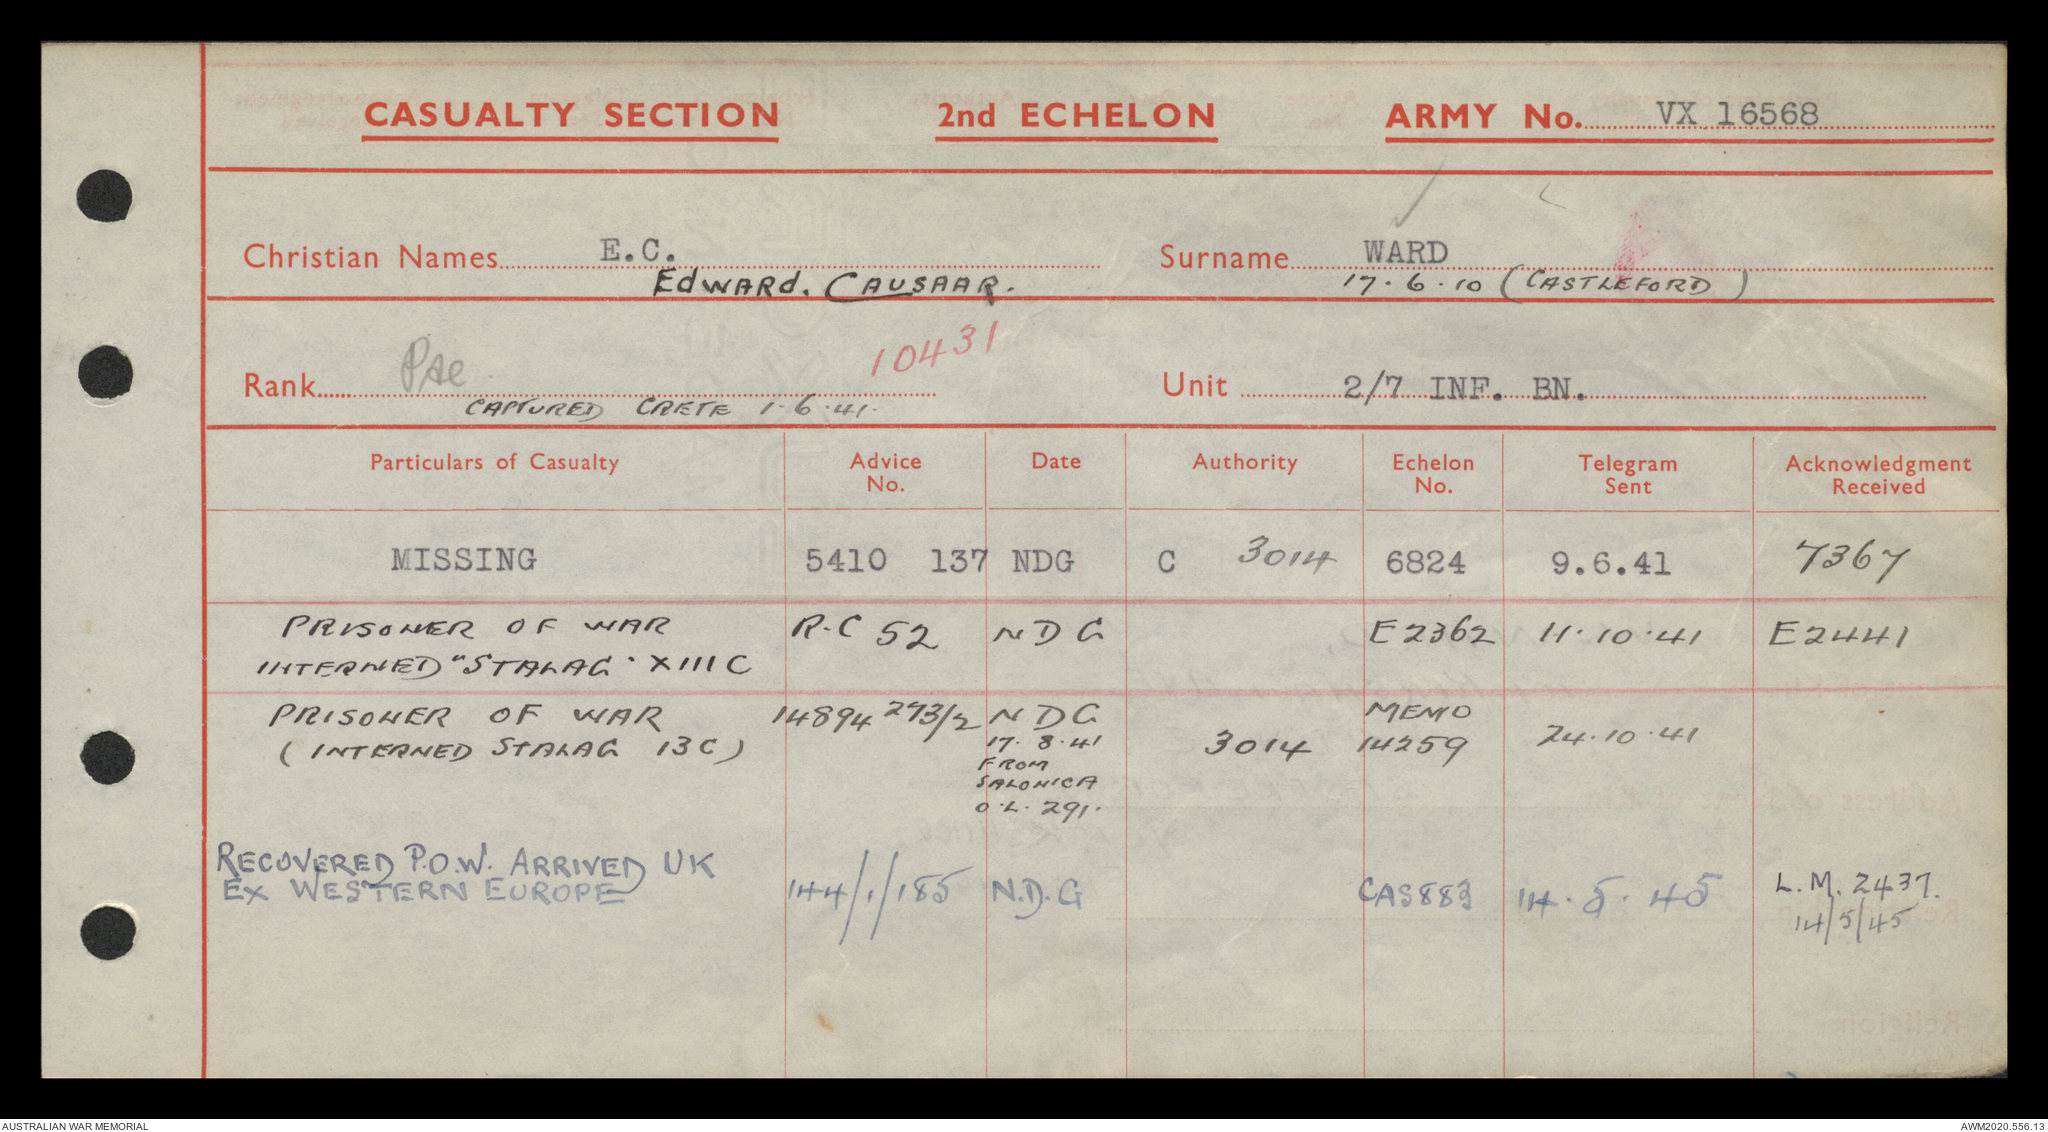 CASUALTY SECTION 2nd ECHELON ARMY No. VX 16568
Christian Names E.C. Surname WARD
Edward. CAUSAAR. 17.6.10 (CASTLEFORD)
10431
Rank Pte Unit 2/7 INF. BN.
CAPTURED CRETE 1.6.41.
Particulars of Casualty Advice No. Date Authority Echelon No. Telegram Sent Acknowledgment Received
MISSING 5410 137 NDG C 3014 6824 9.6.41 7367
PRISONER OF WAR R.C 52 NDG E2362 11.10.41 E2441
INTERNED "STALAG" XIIIC
PRISONER OF WAR 14894 273/2 NDG MEMO
(INTERNED STALAG 13C) 17.8.41 3014 14259 24.10.41
FROM
SALONICA
O.L. 291.
RECOVERED P.O.W. ARRIVED UK
EX WESTERN EUROPE 144/1/185 N.D.G CAS883 14.5.45 L.M. 2437.
14/5/45
AUSTRALIAN WAR MEMORIAL AWM2020.556.13